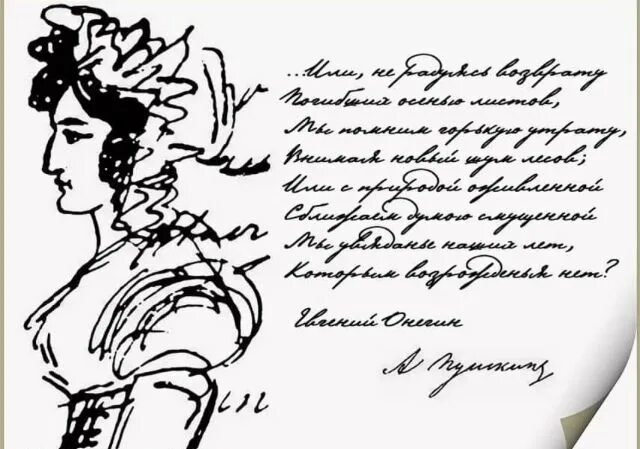 ...Или, не радуясь возврату
Погибших осенью листов,
Мы помним горькую утрату,
Внимая новый шум лесов;
Или с природой оживленной
Сближаем думою смущенной
Мы увяданье наших лет,
Которым возрожденья нет?
Евгений Онегин
А Пушкинъ